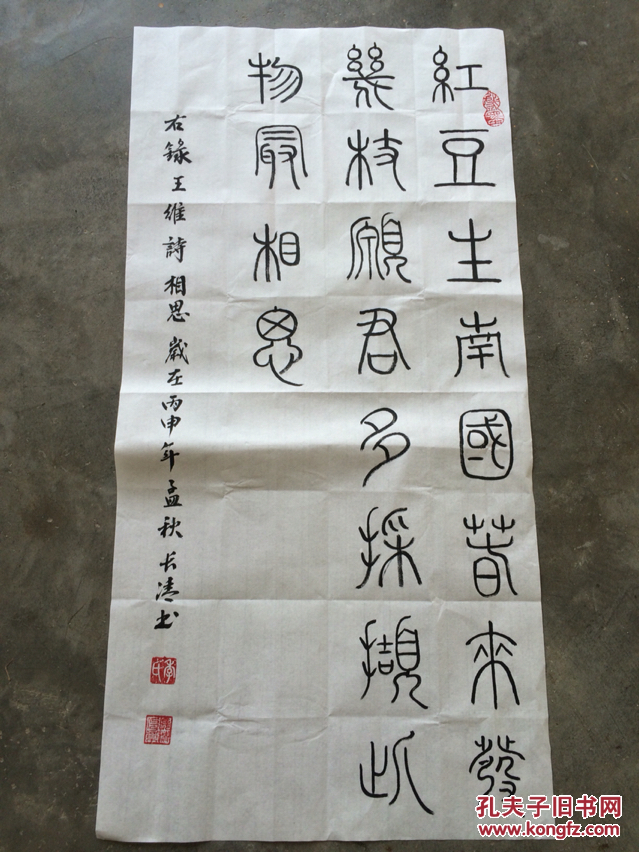 紅豆生南國春來發
幾枝願君多採擷此
物最相思
右錄王維詩相思歲在丙申年孟秋長清书
孔夫子旧书网
www.kongfz.com